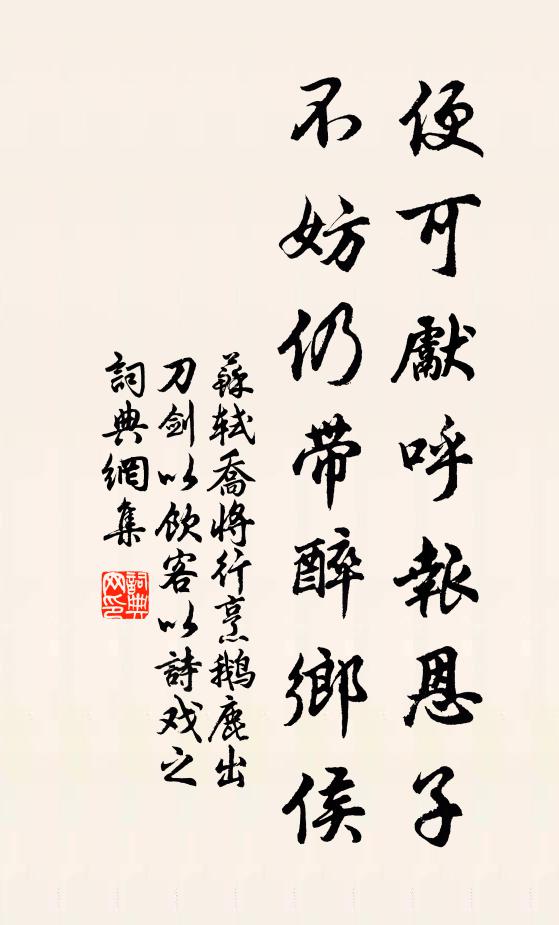 便可獻呼報恩子
不妨仍带醉鄉侯
蘇軾喬將行烹鵝鹿出
刀劍以飲客以詩戏之
詞典網集
詞典
网印